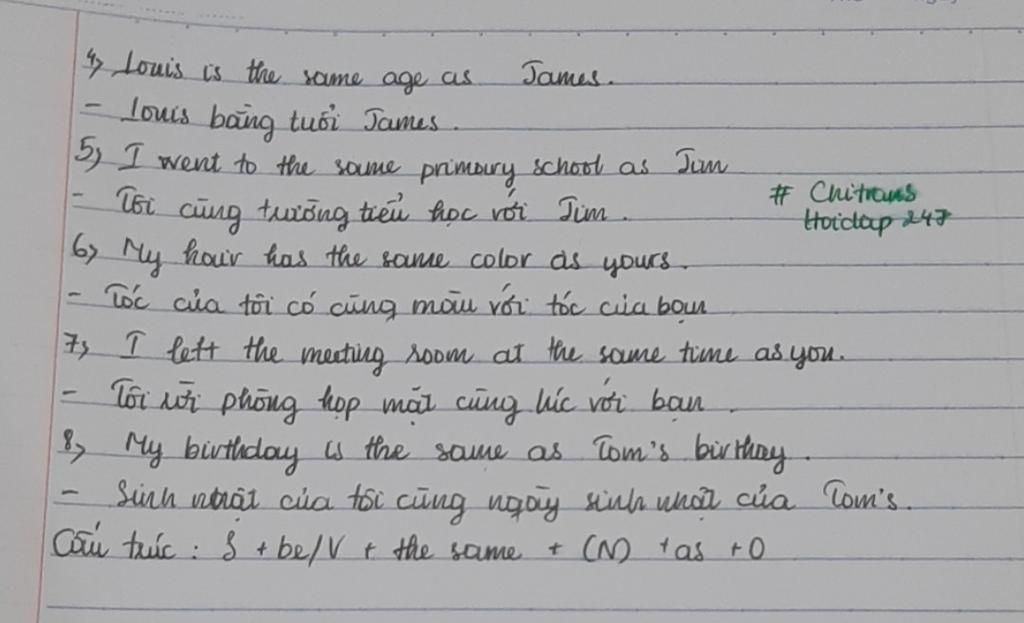 4, Louis is the same age as James.
- Louis bằng tuổi James.
5, I went to the same primary school as Jim
- Tôi cùng trường tiểu học với Jim.
# Chitrans
Hoidap 247
6, My hair has the same color as yours.
- Tóc của tôi có cùng màu với tóc của bạn
7, I left the meeting room at the same time as you.
- Tôi rời phòng họp mặt cùng lúc với bạn.
8, My birthday is the same as Tom's birthay.
- Sinh nhật của tôi cùng ngày sinh nhật của Tom's.
Cấu trúc : S + be/V + the same + (N) + as + O